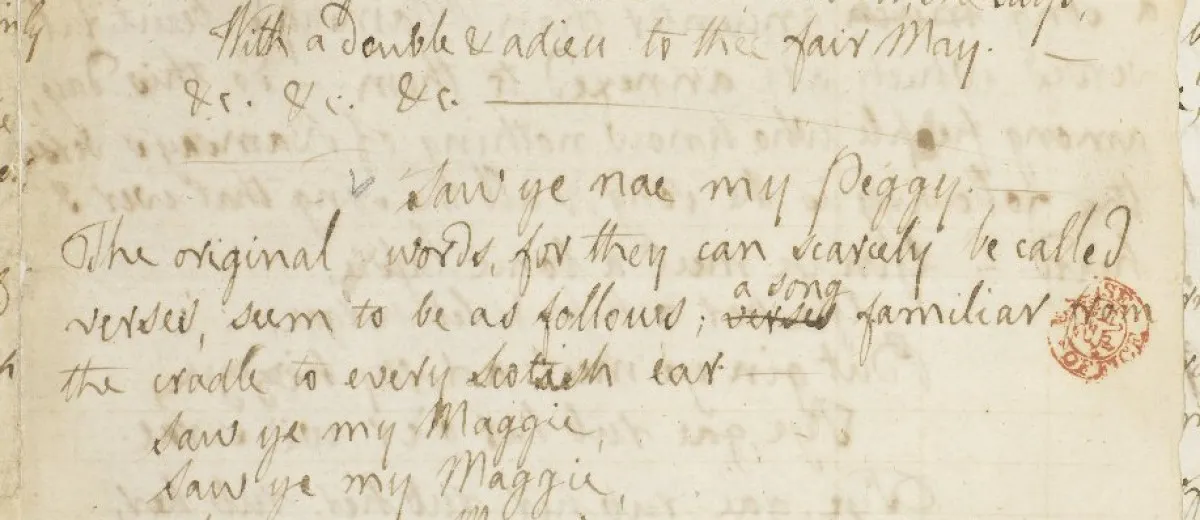 With a double & adieu to thee fair May. —
&c. &c. &c. —
Saw ye nae my Peggy. —
The original words, for they can scarcely be called
verses, seem to be as follows; a song verses familiar from
the cradle to every Scotish ear —
Saw ye my Maggie,
Saw ye my Maggie,